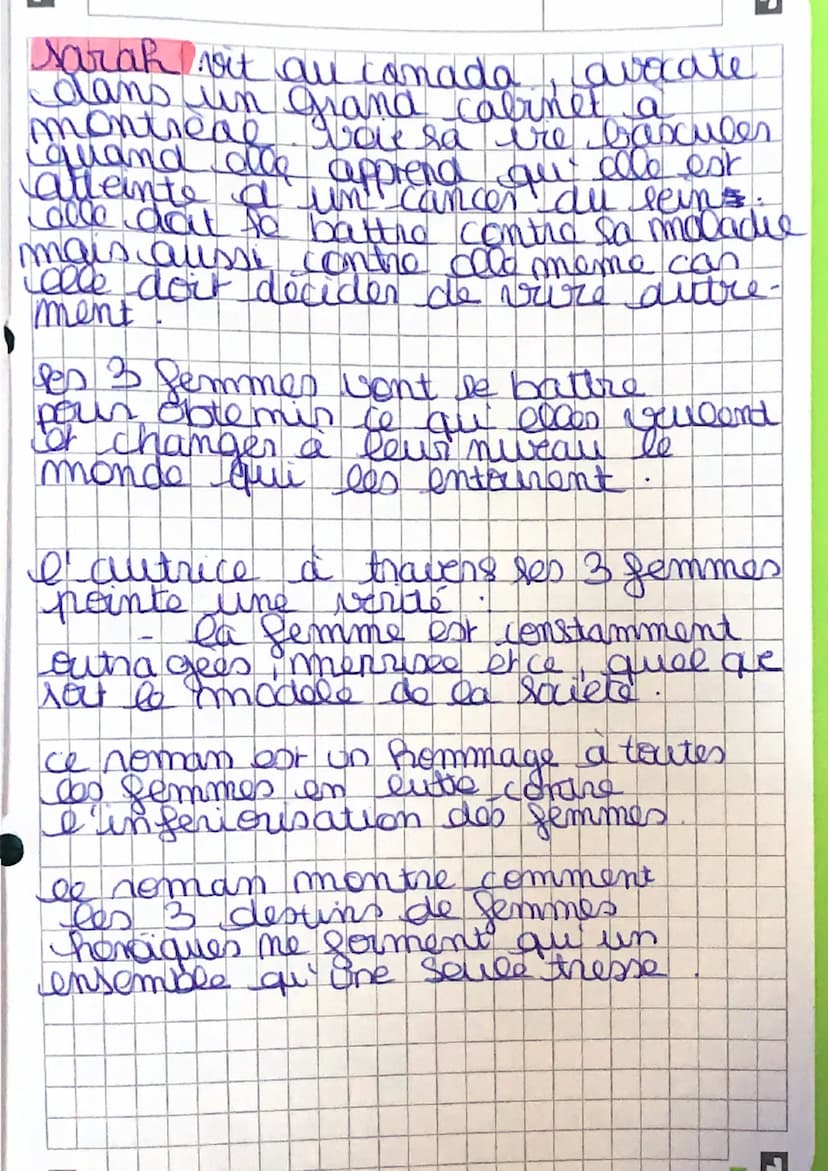 Sarah vit au canada, avocate
dans un grand cabinet a
montréal. Voie sa vie basculer
quand elle apprend qu'elle est
atteinte d'un cancer du sein.
elle doit se battre contre sa maladie
mais aussi contre elle meme car
elle doit décider de vivre autre-
ment.
Ses 3 femmes vont se battre
pour obtenir ce qu'elles veulent
et changer à leur niveau le
monde qui les entourent.
l'autrice à travers ses 3 femmes
pointe une vérité.
- la femme est constamment
outragées, meprisée, quel que
soit le modèle de la société.
ce roman est un hommage à toutes
les femmes en lutte contre
l'inferiorisation des femmes.
le roman montre comment
les 3 destins de femmes
héroïques ne forment qu'un
ensemble qu'une seule tresse.